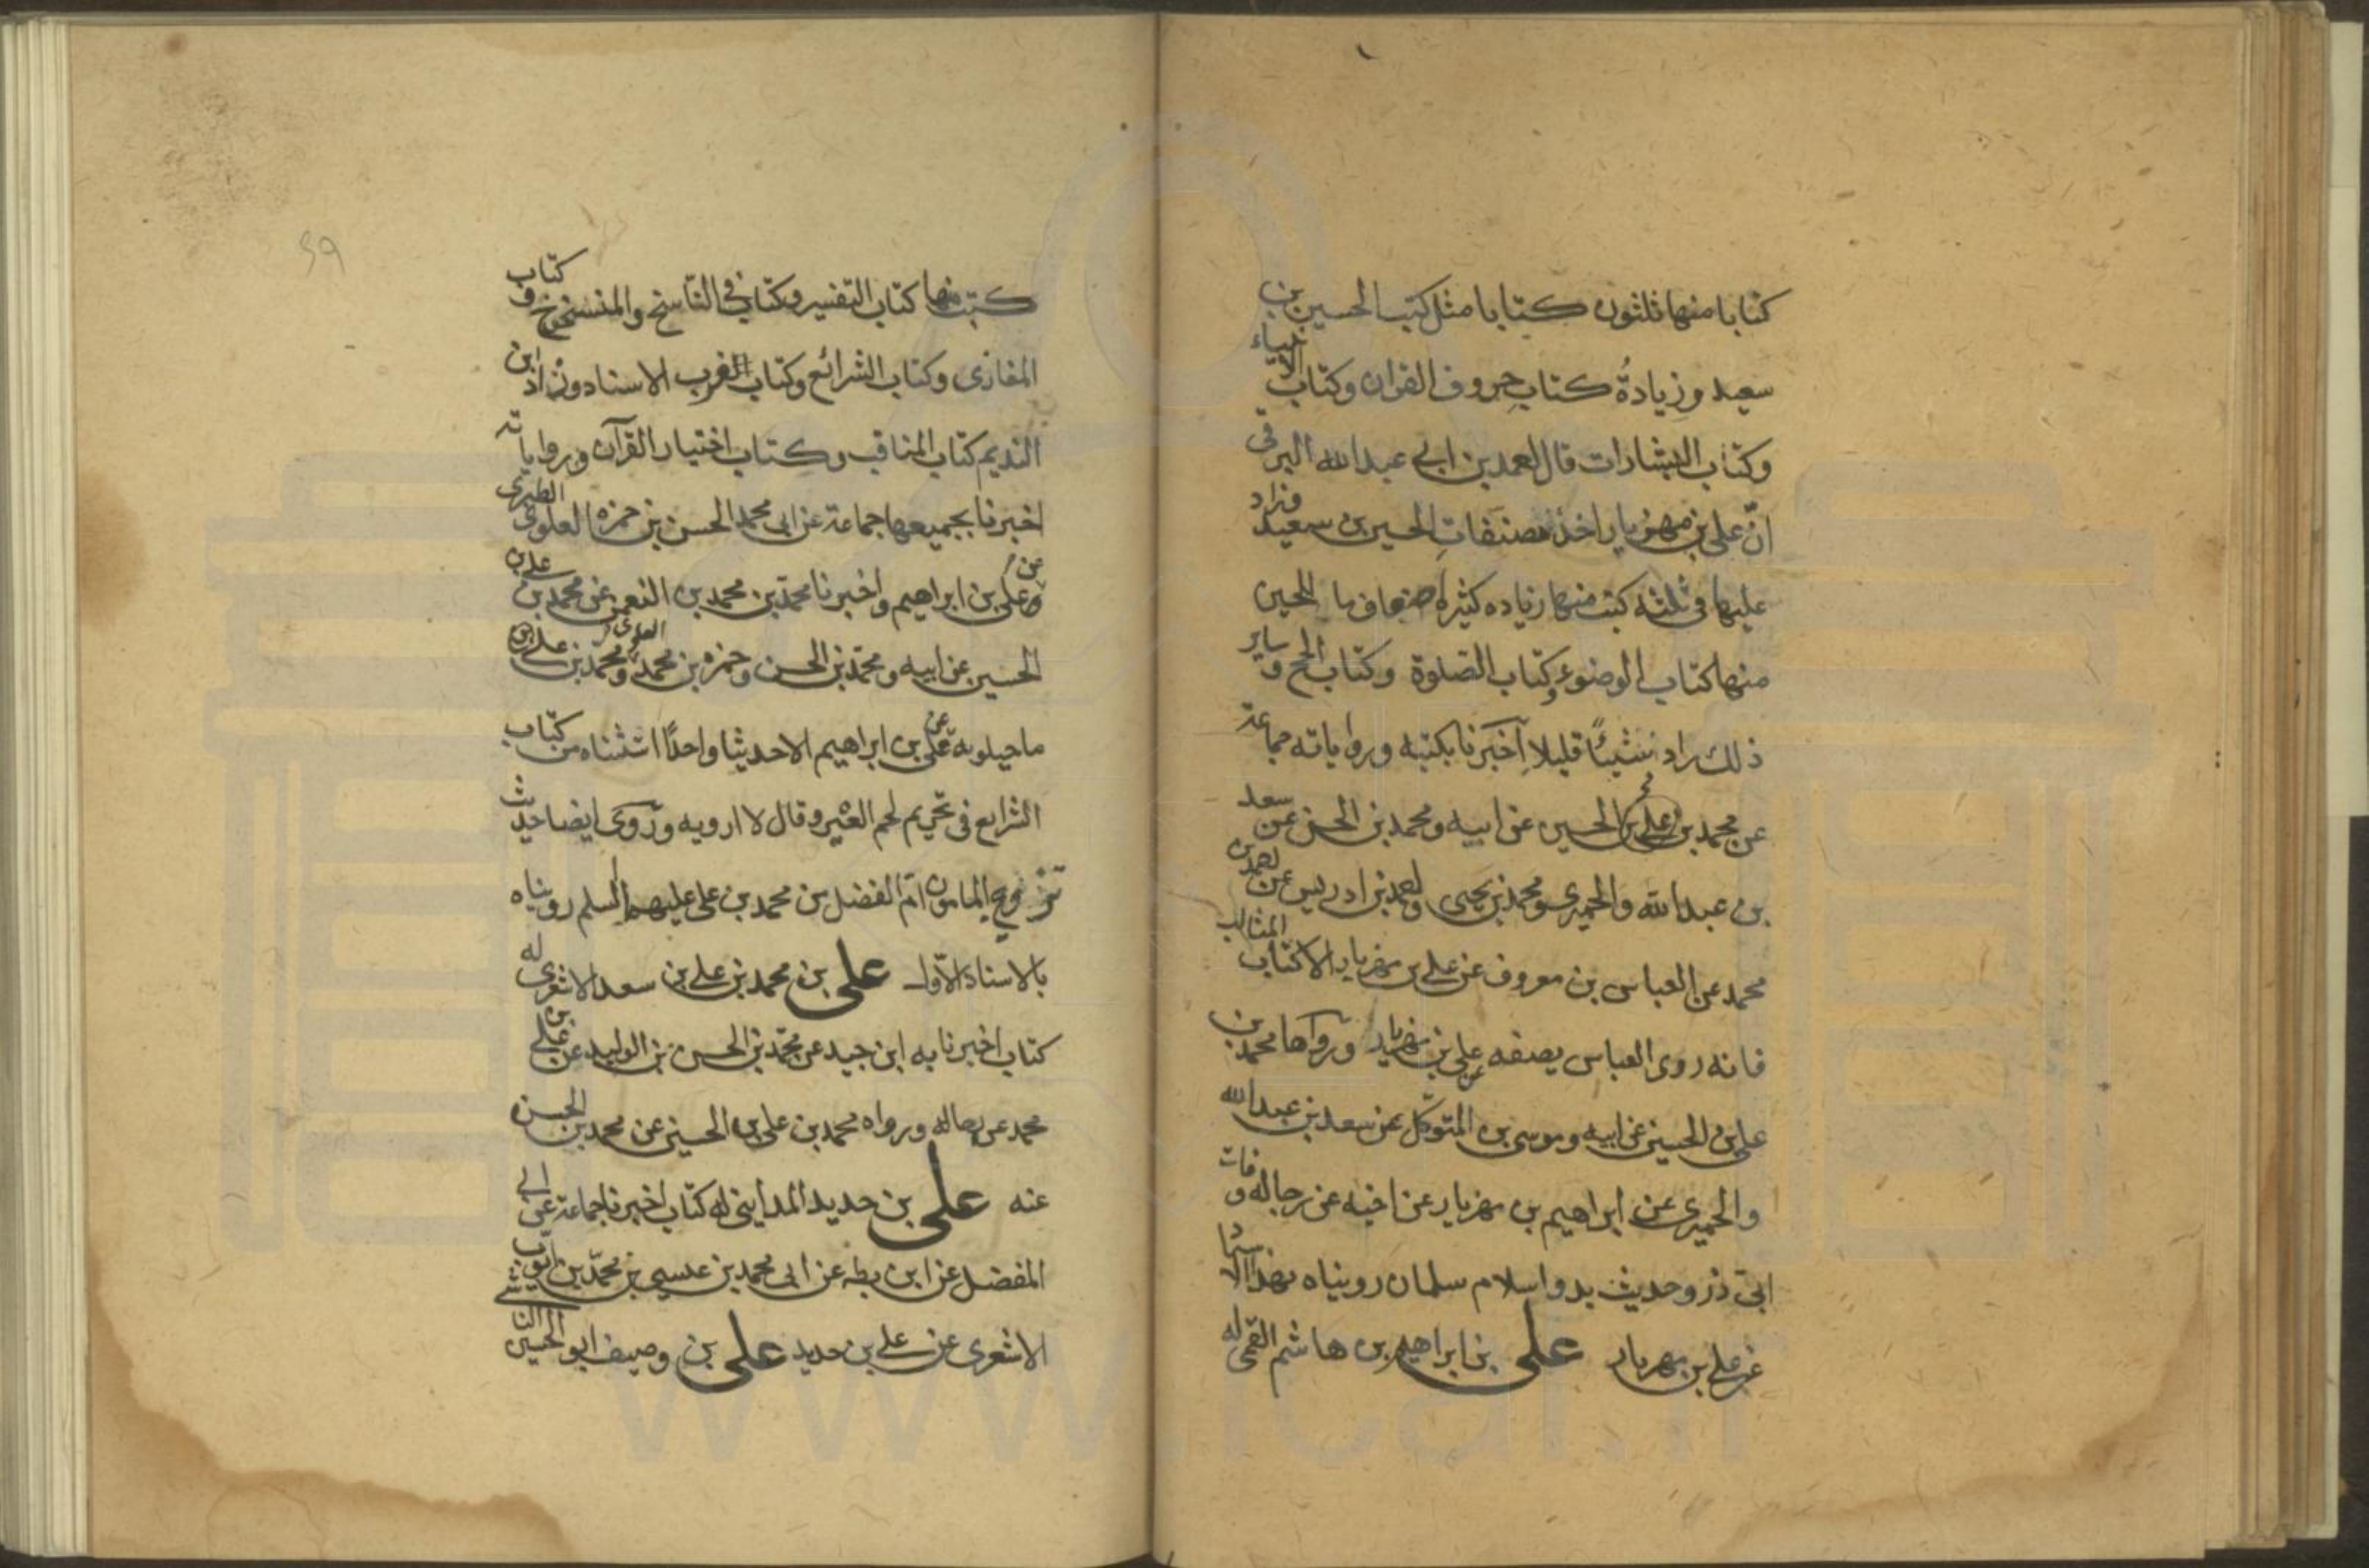 كتابا منها ثلثون كتابا مثل كتب الحسين بن
سعيد وزيادة كتاب حروف القران وكتاب الانبياء
وكتاب البشارات قال احمد بن ابي عبد الله البرقى
انّ على بن مهزيار اخذ مصنّفات الحسين بن سعيد وزاد
عليها فى ثلثه كتب منها زياده كثيرة اضعاف ما للحسين
منها كتاب الوضوء وكتاب الصّلوة وكتاب الحج وساير
ذلك زاد شيئًا قليلا اخبرنا بكتبه ورواياته جماعة
عن محمد بن على بن الحسين عن ابيه ومحمد بن الحسن عن سعد
بن عبد الله والحميرى ومحمد بن يحيى واحمد بن ادريس عن احمد بن
محمد عن العباس بن معروف عن على بن مهزيار الا كتاب المثالب
فانه روى العباس يصفه عن على بن مهزيار ورواها محمد بن
على بن الحسين عن ابيه وموسى بن المتوكّل عن سعد بن عبد الله
والحميرى عن ابراهيم بن مهزيار عن اخيه عن رجاله وفات
ابى ذر وحديث بدو اسلام سلمان رويناه بهذا الاسناد
عن على بن مهزيار على بن ابراهيم بن هاشم القمى له
۶۹
كتب منها كتاب التفسير وكتاب فى النّاسخ والمنسوخ وكتاب
المغازى وكتاب الشرائع وكتاب القرب الاسناد وزاد ابن
النديم كتاب المناقب وكتاب اختيار القرآن ورواياته
اخبرنا بجميعها جماعة عن ابى محمد الحسن بن حمزه العلوى الطبرى
عن على بن ابراهيم واخبرنا محمّد بن محمد بن النعمن عن محمد بن على بن
الحسين عن ابيه ومحمّد بن الحسن وحمزه بن محمد العلوى ومحمّد بن على بن
ماجيلويه عن على بن ابراهيم الا حديثا واحدًا استثناه من كتاب
الشرايع فى تحريم لحم العير وقال لا ارويه وروى ايضا حديث
تزويج المامون امّ الفضل من محمد بن على عليهما السلم رويناه
بالاسناد الاوّل على بن محمد بن على بن سعد الاشعرى له
كتاب اخبرنا به ابن جيد عن محمّد بن الحسن بن الوليد عن على بن
محمد عن رجاله ورواه محمد بن على بن الحسين عن محمد بن الحسن
عنه على بن حديد المداينى له كتاب اخبرنا جماعة عن ابى
المفضل عن ابن بطه عن ابى محمد بن عيسى بن محمّد بن ايّوب
الاشعرى عن على بن حديد على بن وصيف ابو الحسين الناشى